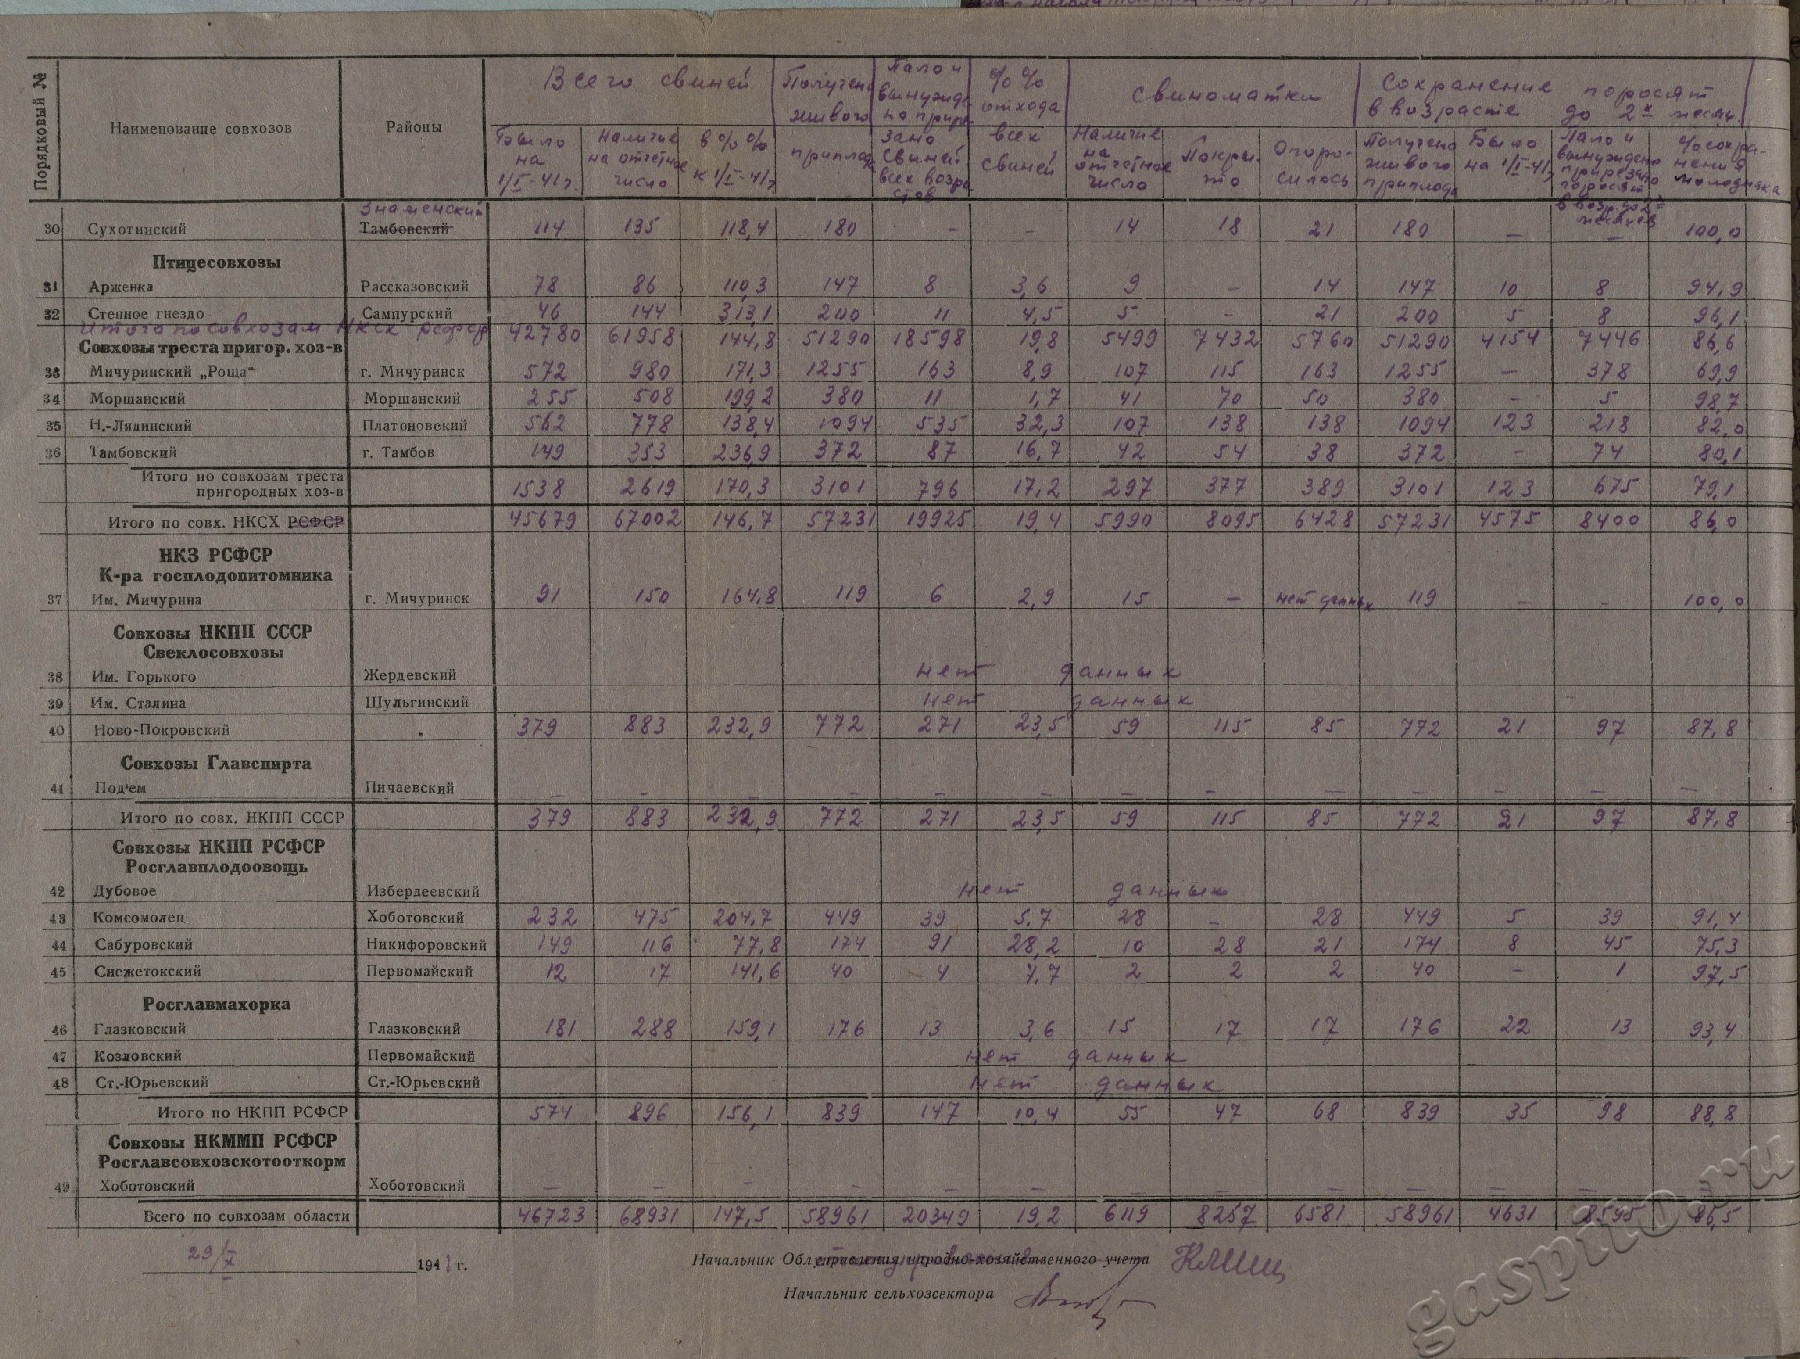 Порядковый №
Наименование совхозов
Районы
Всего свиней
Было на 1/I-41г.
Наличие на отчетное число
в % % к 1/I-41г
Получено живого приплода
Пало и вынужде но прире- зано свиней всех возра стов
% % отхода всех свиней
Свиноматки
Наличие на отчетное число
Покры- то
Опоро- силось
Сохранение поросят в возрасте до 2х месяц.
Получено живого приплода
Было на 1/I-41г
Пало и вынуждено прирезано поросят в возр. до 2х месяцев
% сохра- нения молодняка
30 Сухотинский Знаменский Тамбовский 114 135 118,4 180 – – 14 18 21 180 – – 100,0
Птицесовхозы
31 Арженка Рассказовский 78 86 110,3 147 8 3,6 9 – 14 147 10 8 94,9
32 Степное гнездо Сампурский 46 144 313,1 200 11 4,5 5 - 21 200 5 8 96,1
Итого по совхозам НКСХ РСФСР 42780 61958 144,8 51290 18598 19,8 5499 7432 5760 51290 4154 7446 86,6
Совхозы треста пригор. хоз-в
33 Мичуринский „Роща“ г. Мичуринск 572 980 171,3 1255 163 8,9 107 115 163 1255 – 378 69,9
34 Моршанский Моршанский 255 508 199,2 380 11 1,7 41 70 50 380 - 5 98,7
35 Н.-Лядинский Платоновский 562 778 138,4 1094 535 32,3 107 138 138 1094 123 218 82,0
36 Тамбовский г. Тамбов 149 353 236,9 372 87 16,7 42 54 38 372 - 74 80,1
Итого по совхозам треста
пригородных хоз-в 1538 2619 170,3 3101 796 17,2 297 377 389 3101 123 675 79,1
Итого по совх. НКСХ РСФСР 45679 67002 146,7 57231 19925 19,4 5990 8095 6428 57231 4575 8400 86,0
НКЗ РСФСР
К-ра госплодопитомника
37 Им. Мичурина г. Мичуринск 91 150 164,8 119 6 2,9 15 – нет данных 119 – - 100,0
Совхозы НКПП СССР
Свеклосовхозы
38 Им. Горького Жердевский нет данных
39 Им. Сталина Шульгинский нет данных
40 Ново-Покровский „ 379 883 232,9 772 271 23,5 59 115 85 772 21 97 87,8
Совхозы Главспирта
41 Под'ем Пичаевский – – – – – – – – – – – – –
Итого по совх. НКПП СССР 379 883 232,9 772 271 23,5 59 115 85 772 21 97 87,8
Совхозы НКПП РСФСР
Росглавплодоовощь
42 Дубовое Избердеевский нет данных
43 Комсомолец Хоботовский 232 475 204,7 449 39 5,7 28 – 28 449 5 39 91,4
44 Сабуровский Никифоровский 149 116 77,8 174 91 28,2 10 28 21 174 8 45 75,3
45 Снежетокский Первомайский 12 17 141,6 40 4 7,7 2 2 2 40 - 1 97,5
Росглавмахорка
46 Глазковский Глазковский 181 288 159,1 176 13 3,6 15 17 17 176 22 13 93,4
47 Козловский Первомайский нет данных
48 Ст.-Юрьевский Ст.-Юрьевский нет данных
Итого по НКПП РСФСР 574 896 156,1 839 147 10,4 55 47 68 839 35 98 88,8
Совхозы НКММП РСФСР
Росглавсовхозскотооткорм
49 Хоботовский Хоботовский – – – – – – – – – – – – –
Всего по совхозам области 46723 68931 147,5 58961 20349 19,2 6119 8257 6581 58961 4631 8595 86,5
29/X 1941 г.
Начальник Облуправления народно-хозяйственного учета
Начальник сельхозсектора
gaspito.ru